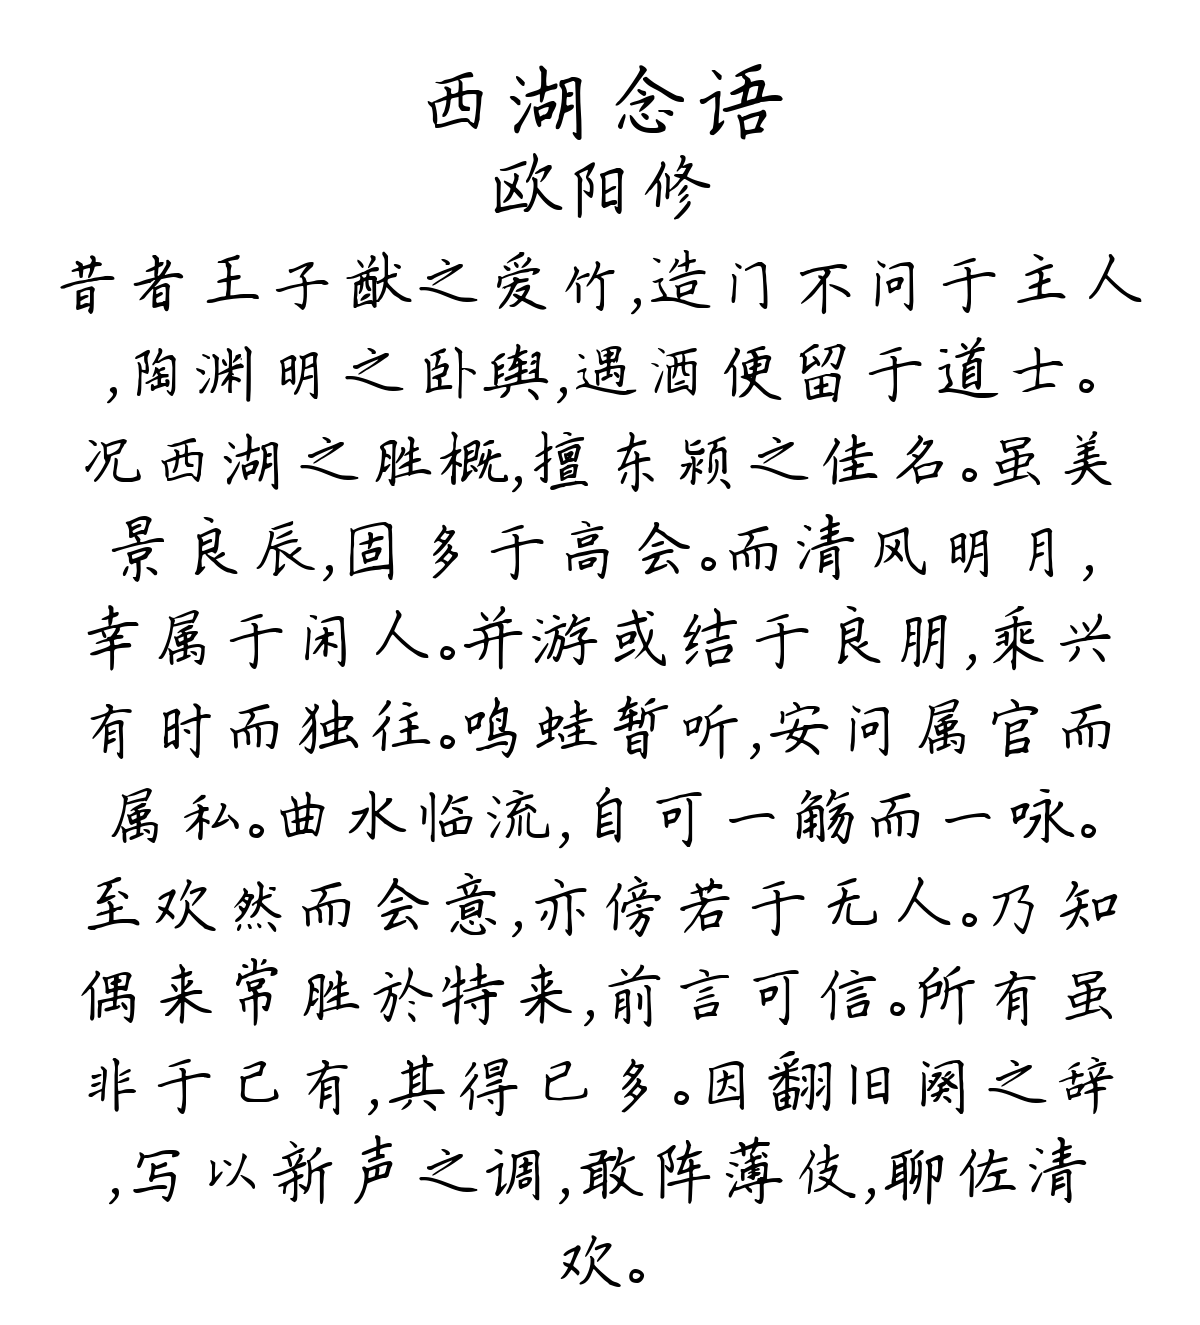 西湖念语
欧阳修
昔者王子猷之爱竹,造门不问于主人
,陶渊明之卧舆,遇酒便留于道士。
况西湖之胜概,擅东颍之佳名。虽美
景良辰,固多于高会。而清风明月,
幸属于闲人。并游或结于良朋,乘兴
有时而独往。鸣蛙暂听,安问属官而
属私。曲水临流,自可一觞而一咏。
至欢然而会意,亦傍若于无人。乃知
偶来常胜於特来,前言可信。所有虽
非于己有,其得已多。因翻旧阕之辞
,写以新声之调,敢阵薄伎,聊佐清
欢。